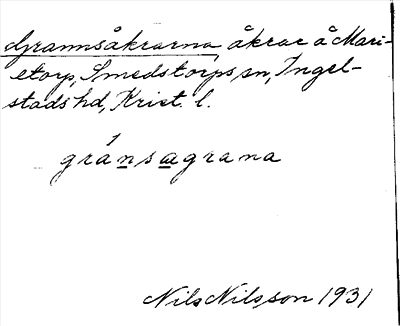 Grannsåkrarna, åkrar å Mari-
etorp, Smedstorps sn, Ingel-
stads hd, Krist. l.
gránsagrana
Nils Nilsson 1931